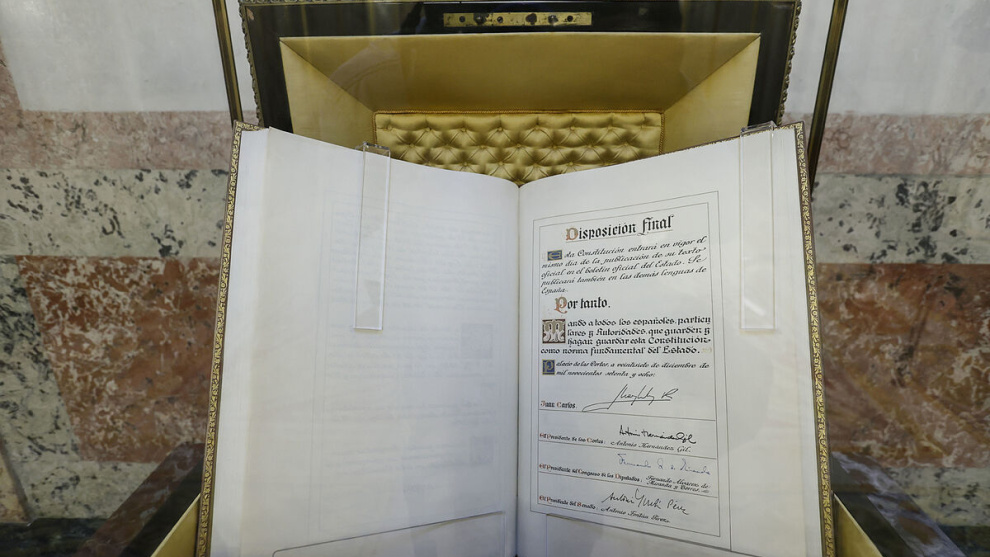 Disposición final
Esta Constitución entrará en vigor el
mismo día de la publicación de su texto
oficial en el boletín oficial del Estado. Se
publicará también en las demás lenguas de
España.
Por tanto,
Mando a todos los españoles, particu
lares y Autoridades, que guarden y
hagan guardar esta Constitución
como norma fundamental del Estado.
Palacio de las Cortes, a veintisiete de diciembre de
mil novecientos setenta y ocho.
Juan Carlos
El Presidente de las Cortes:
Antonio Hernández Gil
Antonio Hernández Gil.
El Presidente del Congreso de los Diputados:
Fernando Álvarez de
Miranda y Torres
El Presidente del Senado:
Antonio Fontán Pérez
Antonio Fontán Pérez